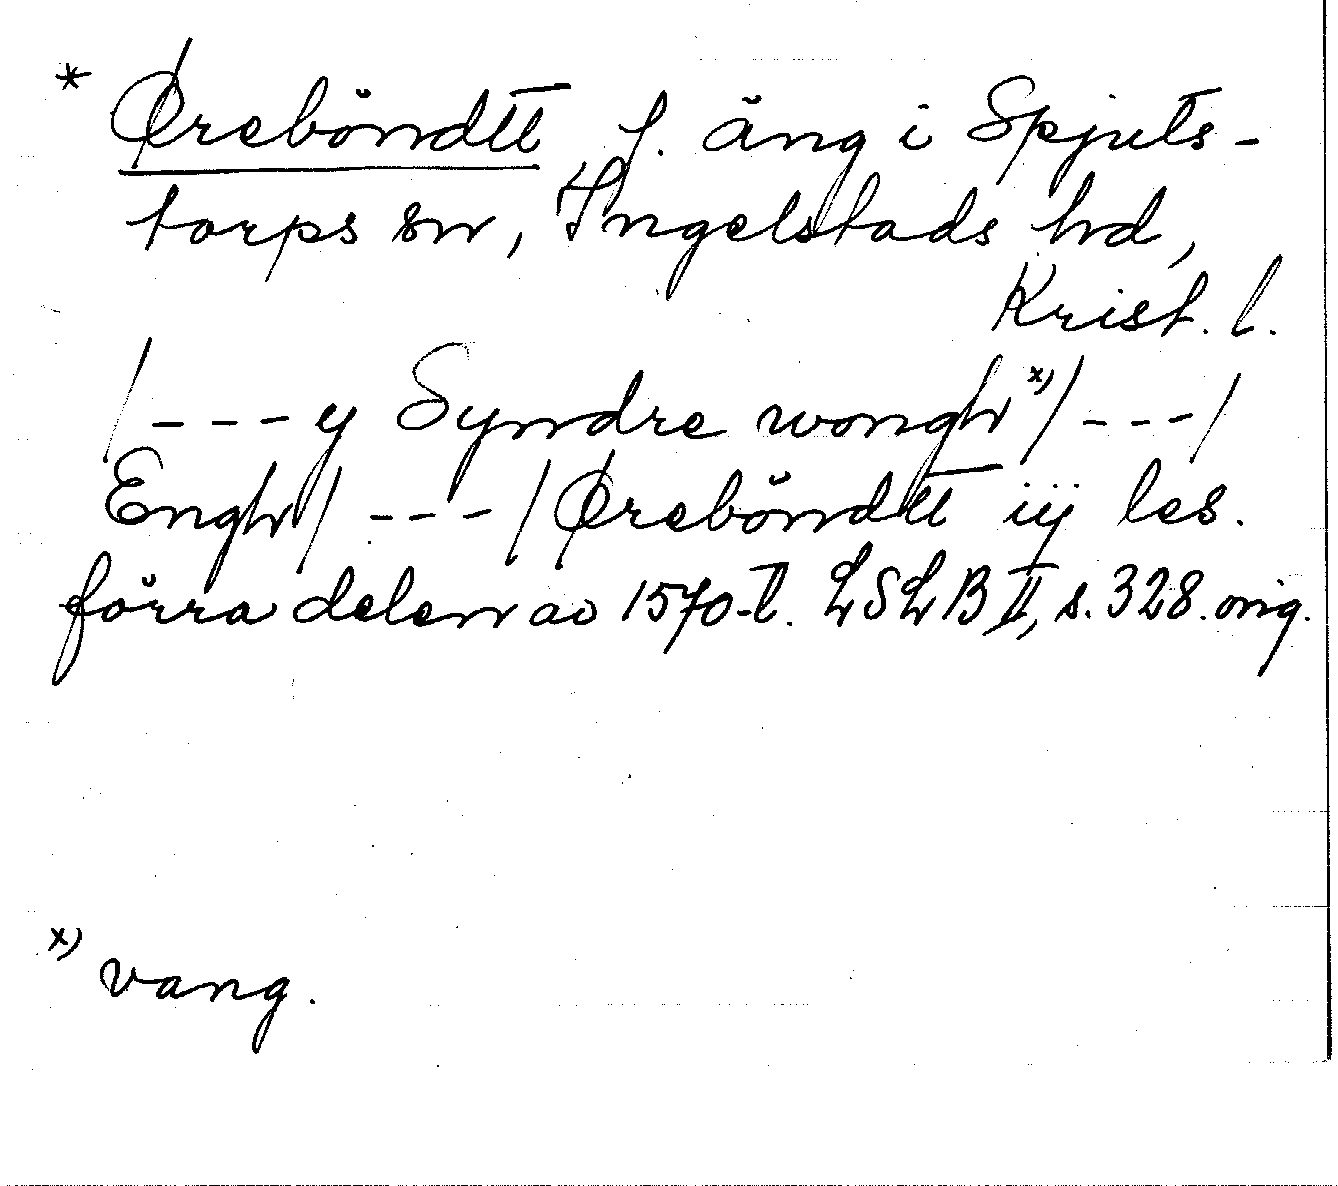 * Øreböndtt f. äng i Spjuts-
torps sn, Ingelstads hd,
Krist. l.
/---y Syndre wongh x)/---/
Engh/---/Øreböndtt iij les.
förra delen av 1570-t. LSLB II, s. 328. orig.
x) vang.